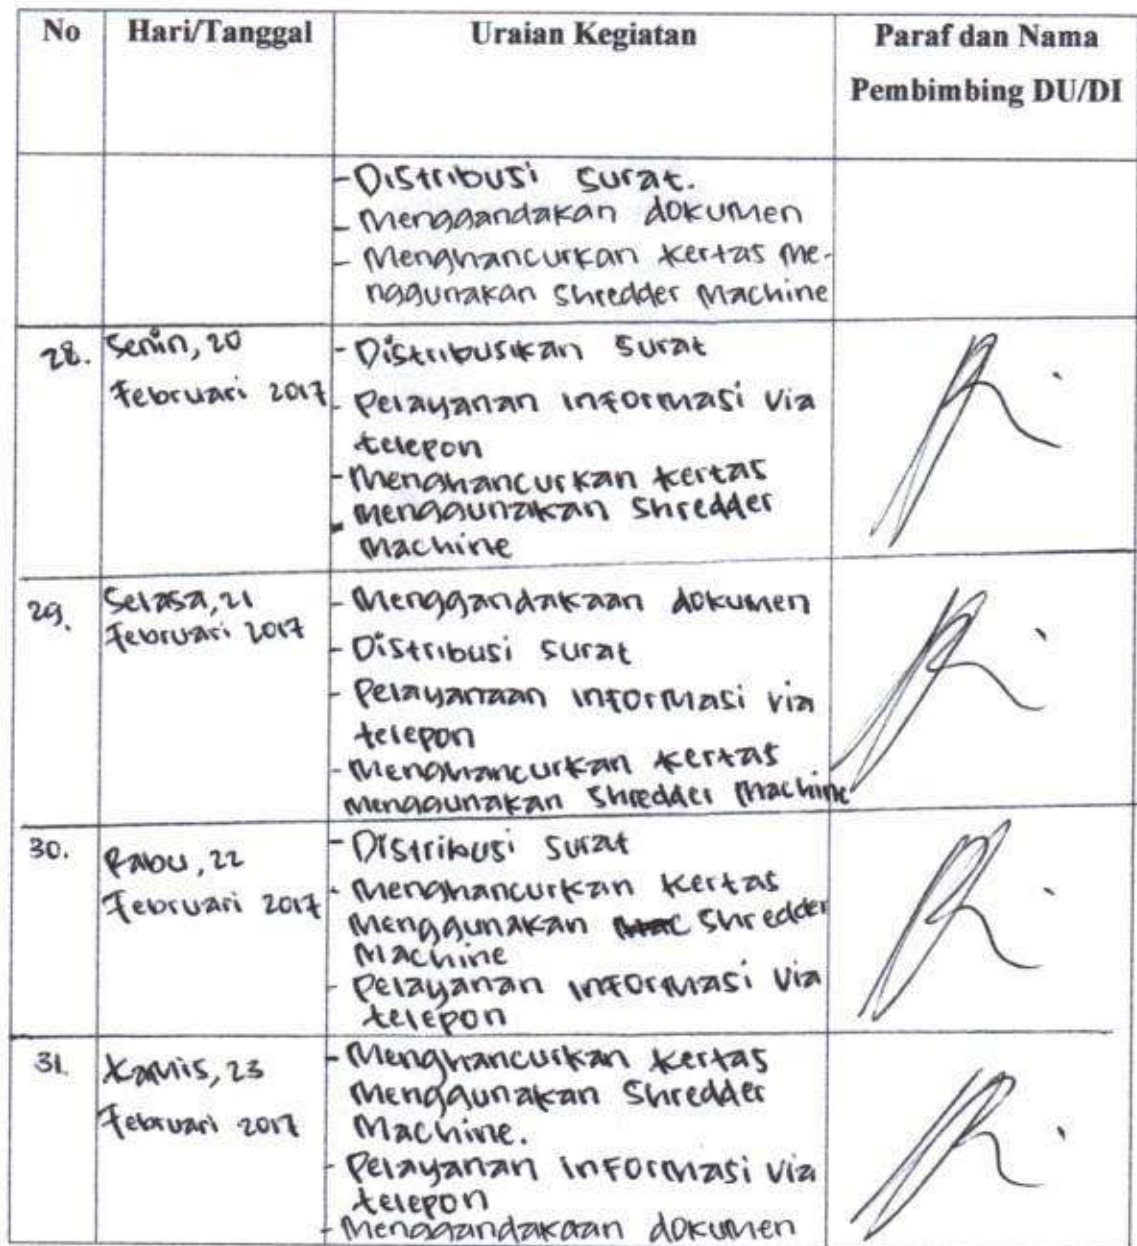 No Hari/Tanggal Uraian Kegiatan Paraf dan Nama
Pembimbing DU/DI
- Distribusi surat.
- Menggandakan dokumen
- Menghancurkan kertas me-
nggunakan shredder Machine
28. Senin, 20
Februari 2017
- Distribusikan surat
- Pelayanan informasi via
telepon
- Menghancurkan kertas
- menggunakan shredder
Machine
29. Selasa, 21
Februari 2017
- Menggandakaan dokumen
- Distribusi surat
- Pelayanaan informasi via
telepon
- Menghancurkan kertas
menggunakan shredder Machine
30. Rabu, 22
Februari 2017
- Distribusi surat
- Menghancurkan kertas
Menggunakan shredder
Machine
- Pelayanan informasi via
telepon
31. Kamis, 23
Februari 2017
- Menghancurkan kertas
Menggunakan Shredder
Machine.
- Pelayanan informasi via
telepon
- Menggandakaan dokumen